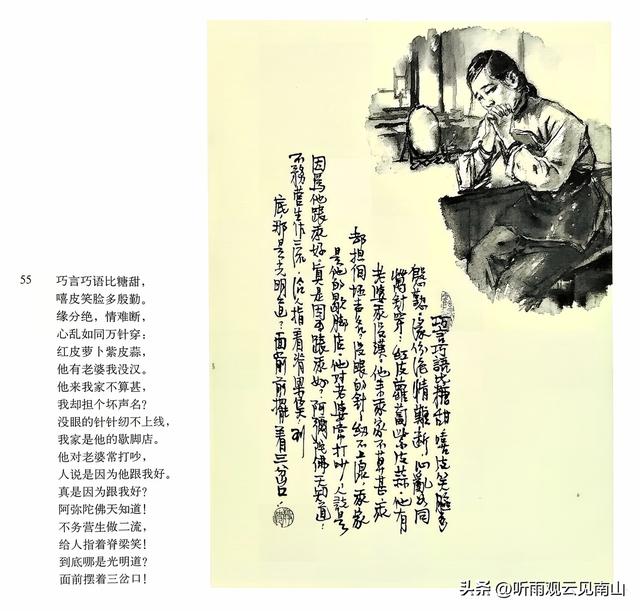 55
巧言巧语比糖甜，
嘻皮笑脸多殷勤。
缘分绝，情难断，
心乱如同万针穿：
红皮萝卜紫皮蒜，
他有老婆我没汉。
他来我家不算甚，
我却担个坏声名？
没眼的针针纫不上线，
我家是他的歇脚店。
他对老婆常打吵，
人说是因为他跟我好。
真是因为跟我好？
阿弥陀佛天知道！
不务营生做二流，
给人指着脊梁笑！
到底哪是光明道？
面前摆着三岔口！
巧言巧語比糖甜嘻皮笑臉多
殷勤。缘份绝情難断心亂如同
萬針穿：紅皮蘿蔔紫皮蒜。他有
老婆我没漢。他来我家不算甚我
却担個坏声名？没眼的針纫不上線，我家
是他的歇脚店。他对老婆常打吵人説是
因爲他跟我好，真是因爲跟我好？阿彌陀佛天知道！
不務營生作二流，给人指着脊梁笑！到
底那是光明道？面前擺着三岔口！
头条 @听雨观云见南山